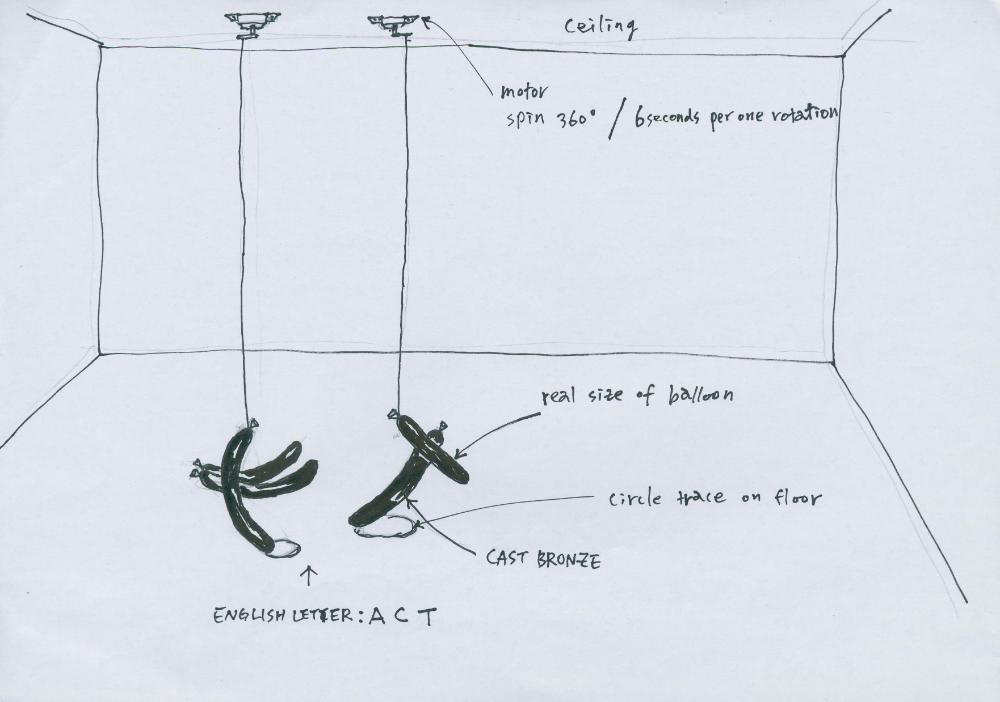 ceiling
motor
spin 360° / 6seconds per one rotation
real size of balloon
circle trace on floor
CAST BRONZE
ENGLISH LETTER: A C T